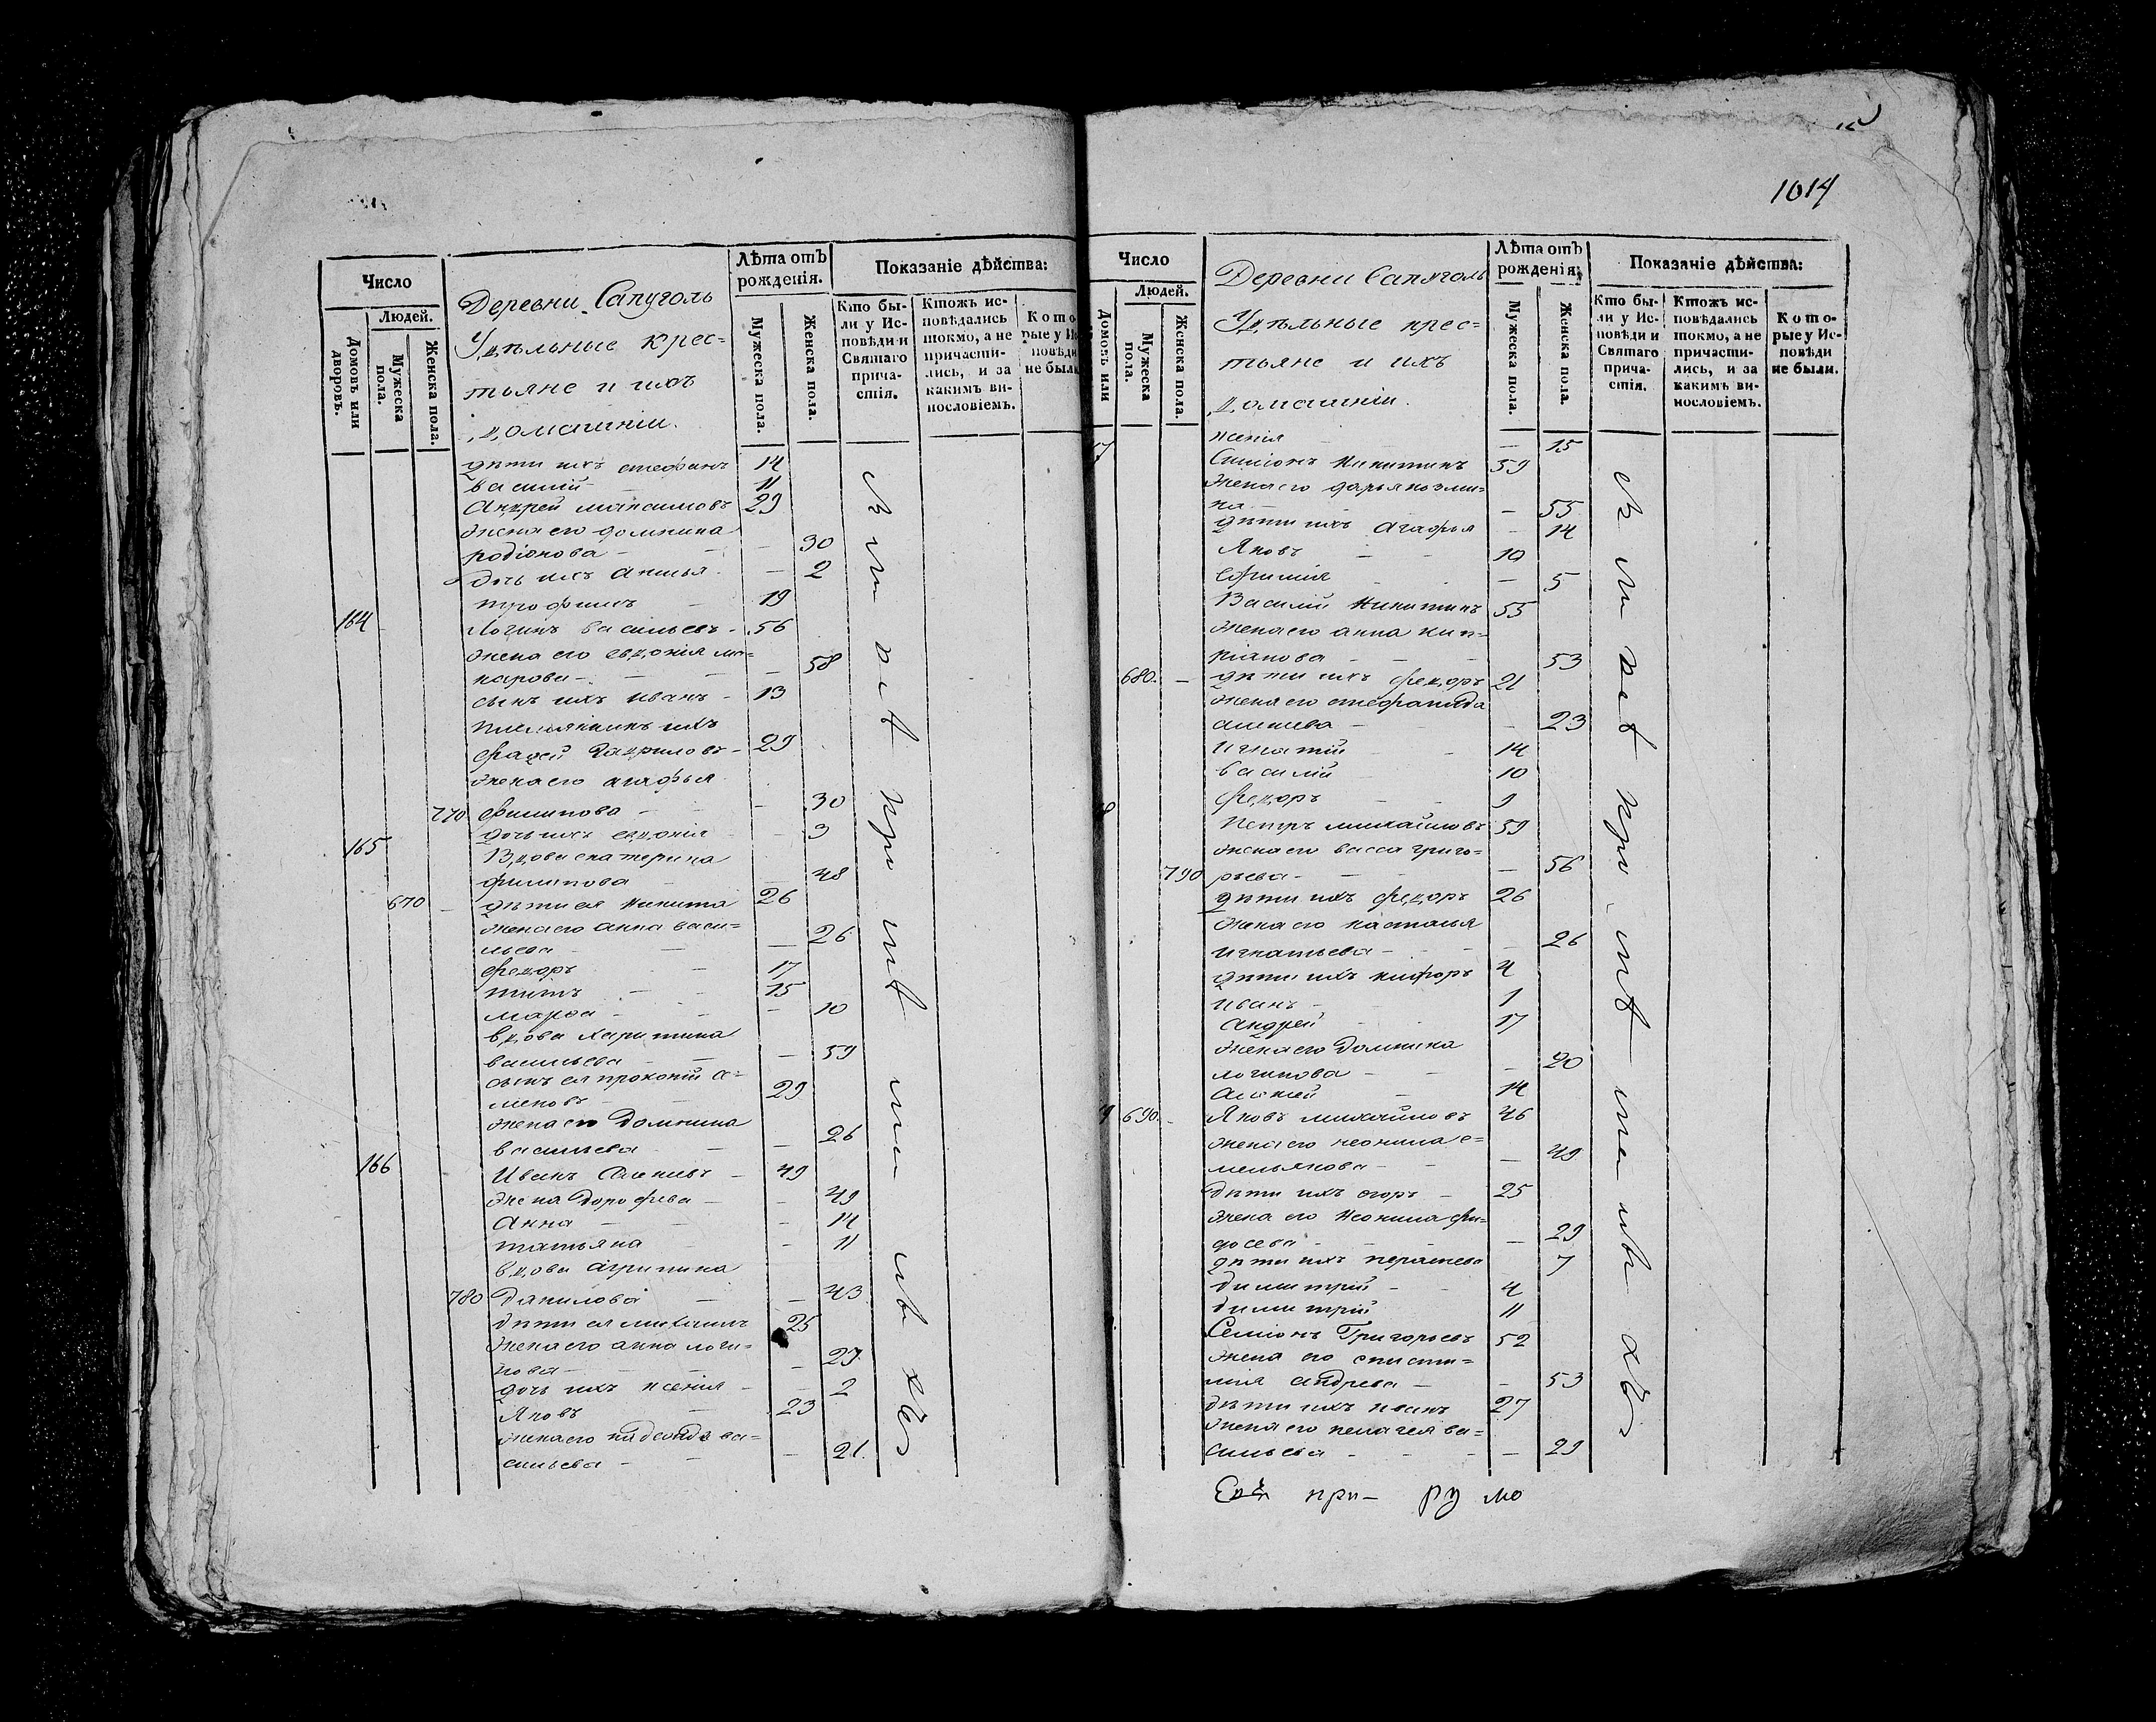 1014
Число
Людей.
Домовъ или дворовъ.
Мужеска пола.
Женска пола.
Деревни Сапуголь
Удѣльные крес=
тьяне и ихъ
домашніи.
Лѣта отъ рожденія.
Мужеска пола.
Женска пола.
Показаніе дѣйства:
Кто бы-
ли у Ис-
повѣди и
Святаго
прича-
стія.
Ктожъ ис-
повѣдались
токмо, а не
причасти-
лись, и за
какимъ ви-
нословіемъ.
Кото-
рые у Ис-
повѣди
не были.
дѣти ихъ стефанъ 14
василій 11
Андрей максимовъ 29
жена его домнина
родіонова — — 30
дочь ихъ — 2
трофимъ — 19
164 Логинъ васильевъ - 56
жена его евдокія ма=
карова - — — 58
сынъ ихъ иванъ - 13
племянникъ ихъ
фадей Гавриловъ - 29
жена его агафья
770 филипова — — 30
дочь ихъ евдокія — 3
165 Вдова екатерина
филипова — — 48
670 — дѣти ея Никита 26
жена его анна васи=
льева — — 26
федоръ — 17
титъ — 15
марфа - — 10
вдова харитина
васильева — — 59
сынъ ея прокопій се=
меновъ — 29
жена его Домнина
васильева — — 26
166 Иванъ — 49
жена Дорофева — — 49
Анна — - 14
татьяна - 11
вдова агрипина
780 Данилова — — 43
дѣти ея михаилъ 25
жена его анна логи=
нова — — 29
дочь ихъ ксенія — 2
Яковъ — 23
жена его ва=
сильева — — 21.
Число
Людей.
Домовъ или
Мужеска пола.
Женска пола.
Деревни Сапуголь
Удѣльные крес=
тьяне и ихъ
домашніи.
Лѣта отъ рожденія.
Мужеска пола.
Женска пола.
Показаніе дѣйства:
Кто бы-
ли у Ис-
повѣди и
Святаго
прича-
стія.
Ктожъ ис-
повѣдались
токмо, а не
причасти-
лись, и за
какимъ ви-
нословіемъ.
Кото-
рые у Ис-
повѣди
не были.
ксенія — — 15
7 Симіонъ Никитинъ 59
жена его дарья козми=
на — — 55
дѣти ихъ Агафья — 14
Яковъ — — 10
Ефимія — 5
Василій Никитинъ 55
жена его анна кип=
ріанова — — 53
680. — дѣти ихъ федоръ 21
жена его стефанида
— — 23
игнатій 14
василій 10
федоръ — 9
8 Петръ михайловъ 59
жена его васса григо=
790 рьева - — — 56
дѣти ихъ федоръ 26
жена его настасья
игнатьева — — 26
дѣти ихъ 4
иванъ — 1
андрей 17
жена его Домнина
логинова — — 20
алексей — 14
9 690. Яковъ михайловъ 46
жена его неонила е=
мельянова — — 49
дѣти ихъ егоръ — 25
жена его Неонила фе=
досева — — 29
дѣти ихъ 7
димитрій — 4
димитрій 11
Семіонъ Григорьевъ 52
жена его еписти=
мія андрева — — 53
дѣти ихъ иванъ 27
жена его пелагея ва=
сильева — — 29
при- ру ло